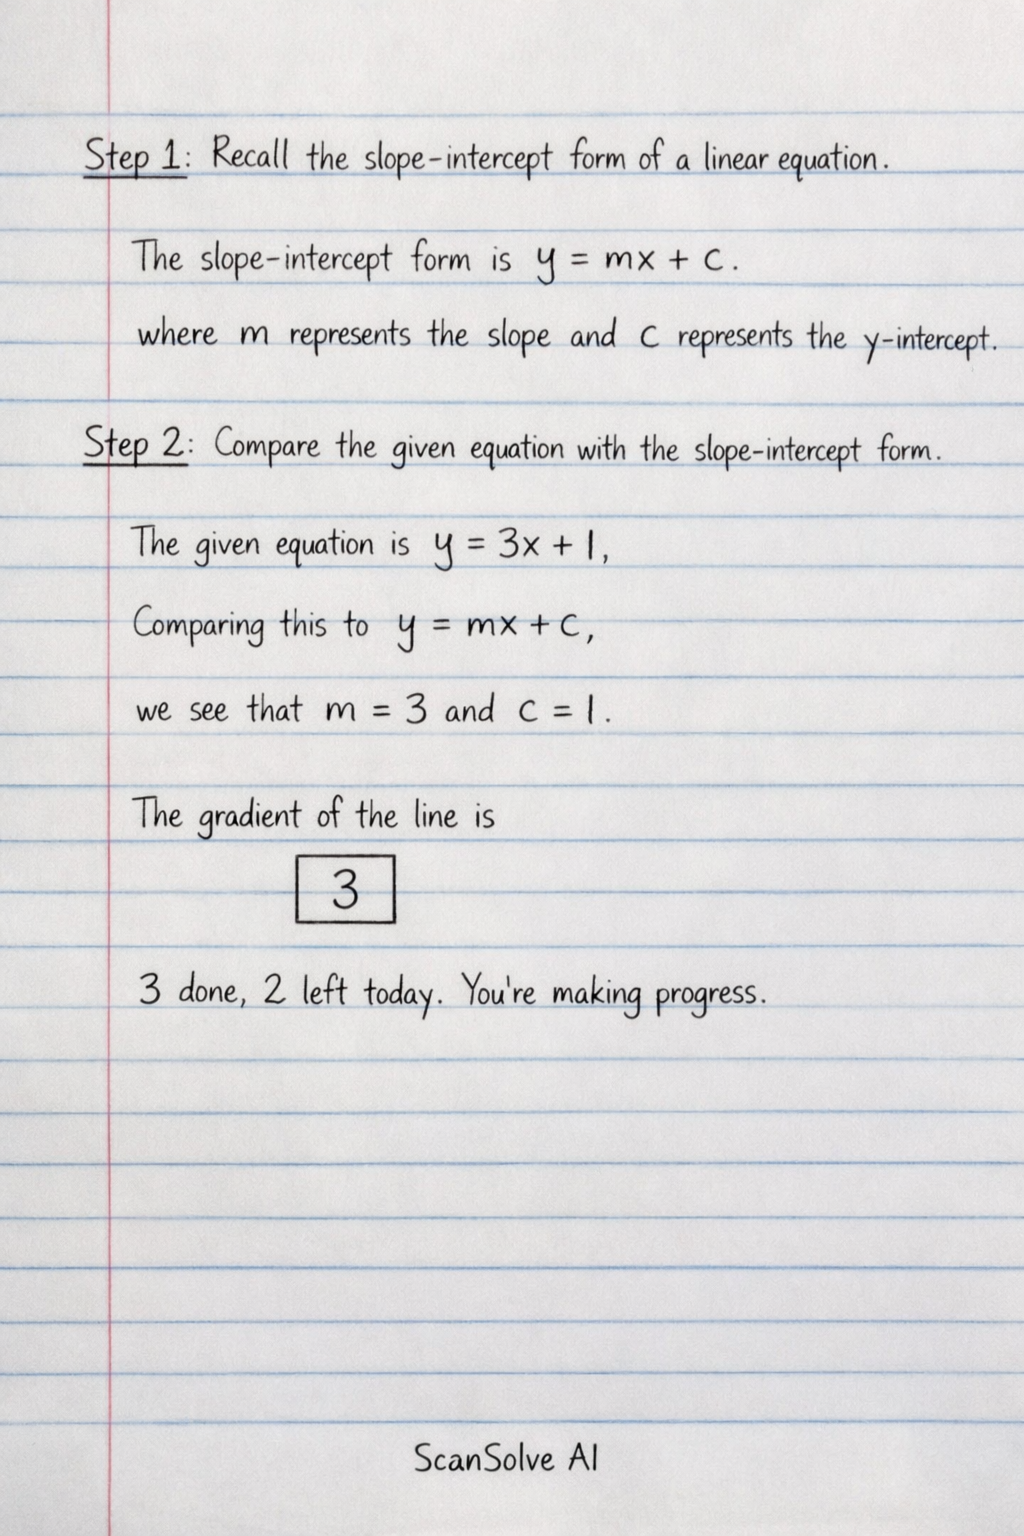 Step 1: Recall the slope-intercept form of a linear equation.
The slope-intercept form is y = mx + c.
where m represents the slope and c represents the y-intercept.
Step 2: Compare the given equation with the slope-intercept form.
The given equation is y = 3x + 1,
Comparing this to y = mx + c,
we see that m = 3 and c = 1.
The gradient of the line is
3
3 done, 2 left today. You're making progress.
ScanSolve AI